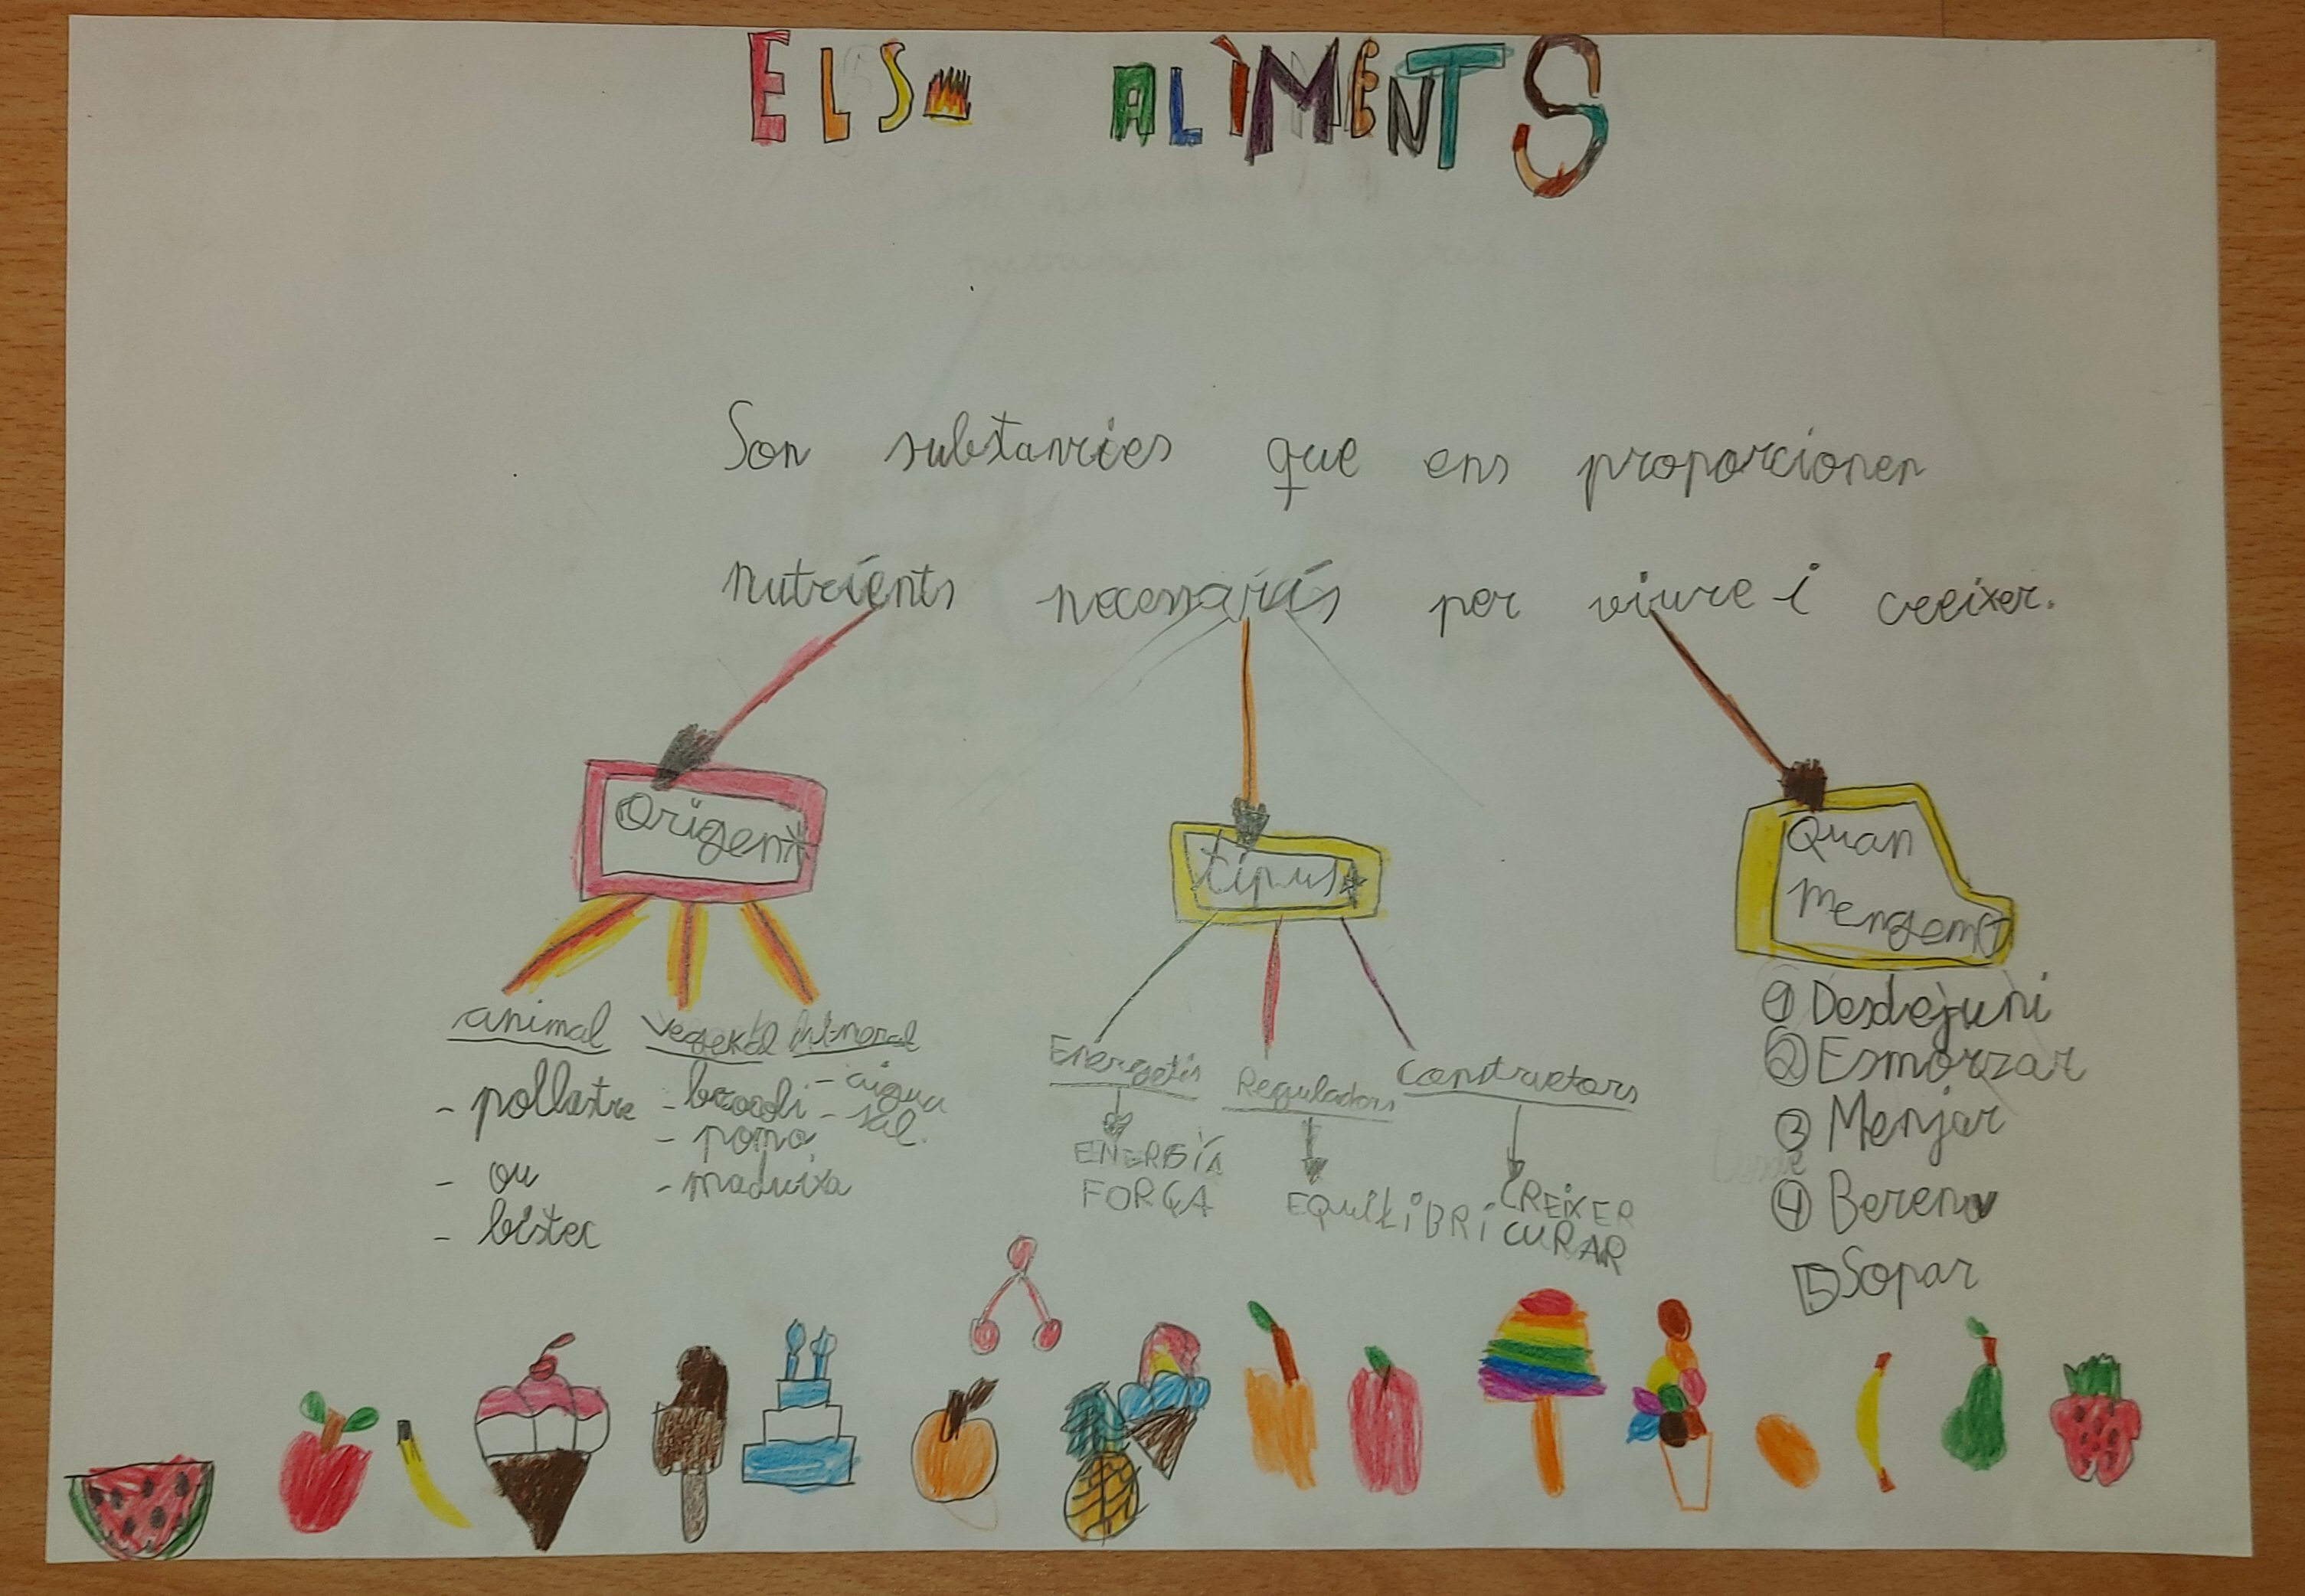 ELS ALIMENTS
Son substancies que ens proporcionen
nutrients necessaris per viure i creixer.
Origen*
tipus
Quan
Mengem
animal
- pollastre
- ou
- bistec
vegetal
- brocoli
- poma
- maduixa
Mineral
- aigua
- sal.
Energetis
ENERGÍA
FORÇA
Reguladors
EQUILIBRI
Constructors
CREIXER
CURAR
1 Desdejuni
2 Esmorzar
3 Menjar
4 Berena
5 Sopar